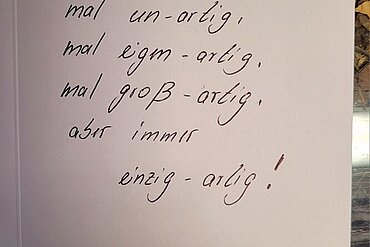 mal un-artig,
mal eigen-artig,
mal groß-artig,
aber immer
einzig-artig!